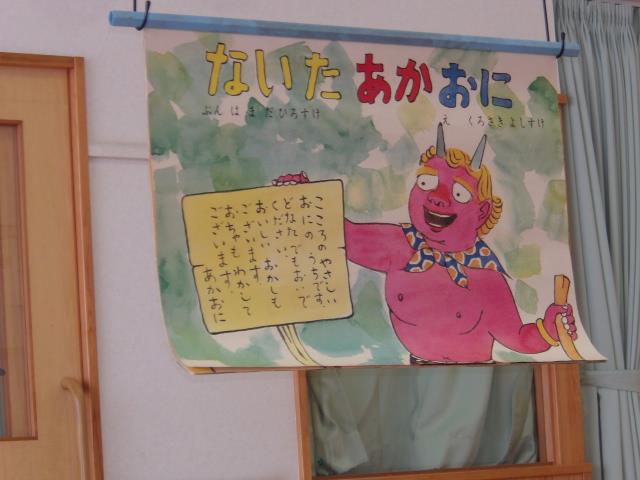 ないた あか おに
ぶん はまだひろすけ
え くろさきよしすけ
こころのやさしい
おにの うちです。
どなたでもおいで
ください。
おいしい おかしも
ございます。
おちゃも わかして
ございます。
あかおに